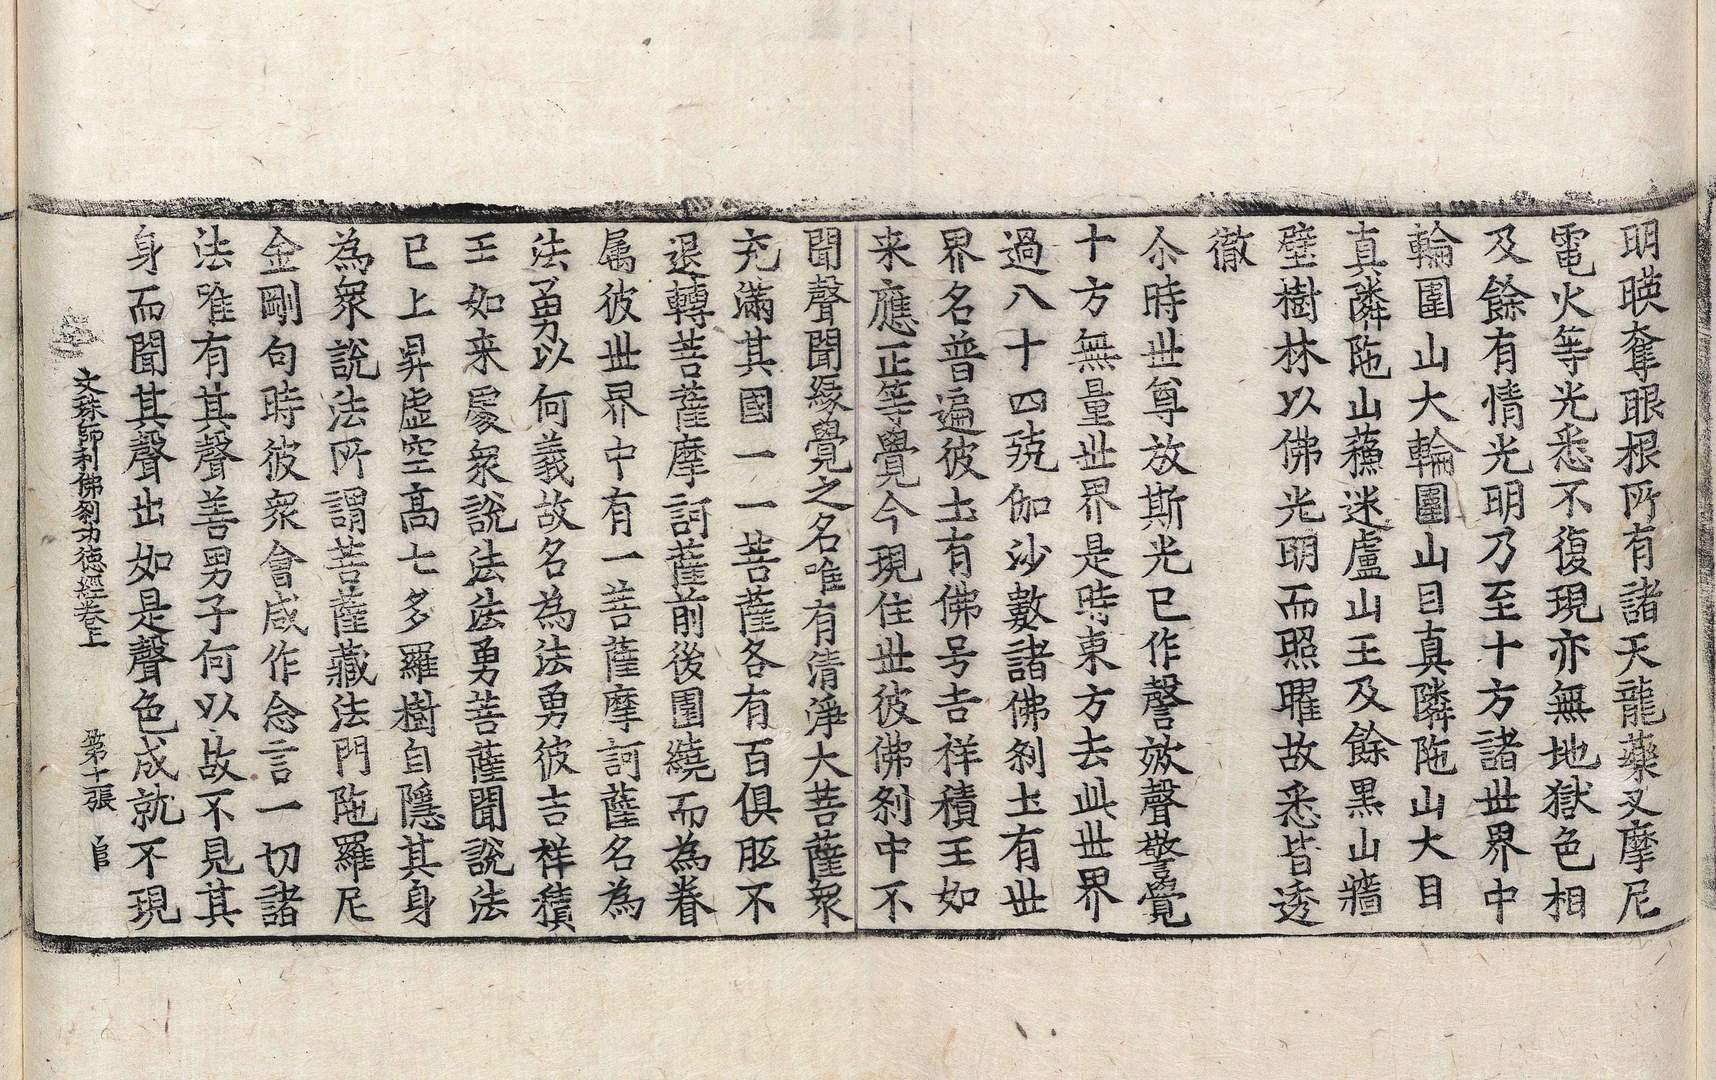 明暎奪眼根所有諸天龍藥叉摩尼
電火等光悉不復現亦無地獄色相
及餘有情光明乃至十方諸世界中
輪圍山大輪圍山目真隣陁山大目
真隣陁山蘓迷盧山王及餘黒山牆
壁樹林以佛光明而照曜故悉皆透
徹
尒時世尊放斯光已作謦欬聲警覺
十方無量世界是時東方去此世界
過八十四殑伽沙數諸佛刹土有世
界名普遍彼土有佛号吉祥積王如
来應正等覺今現住世彼佛刹中不
聞聲聞緣覺之名唯有清淨大菩薩衆
充滿其國一一菩薩各有百俱胝不
退轉菩薩摩訶薩前後圍繞而為眷
属彼世界中有一菩薩摩訶薩名為
法勇以何義故名為法勇彼吉祥積
王如来處衆說法法勇菩薩聞說法
已上昇虛空高七多羅樹自隱其身
為衆說法所謂菩薩藏法門陁羅尼
金剛句時彼衆會咸作念言一切諸
法唯有其聲善男子何以故不見其
身而聞其聲出如是聲色成就不現
文殊師利佛刹功德經卷上 第十張